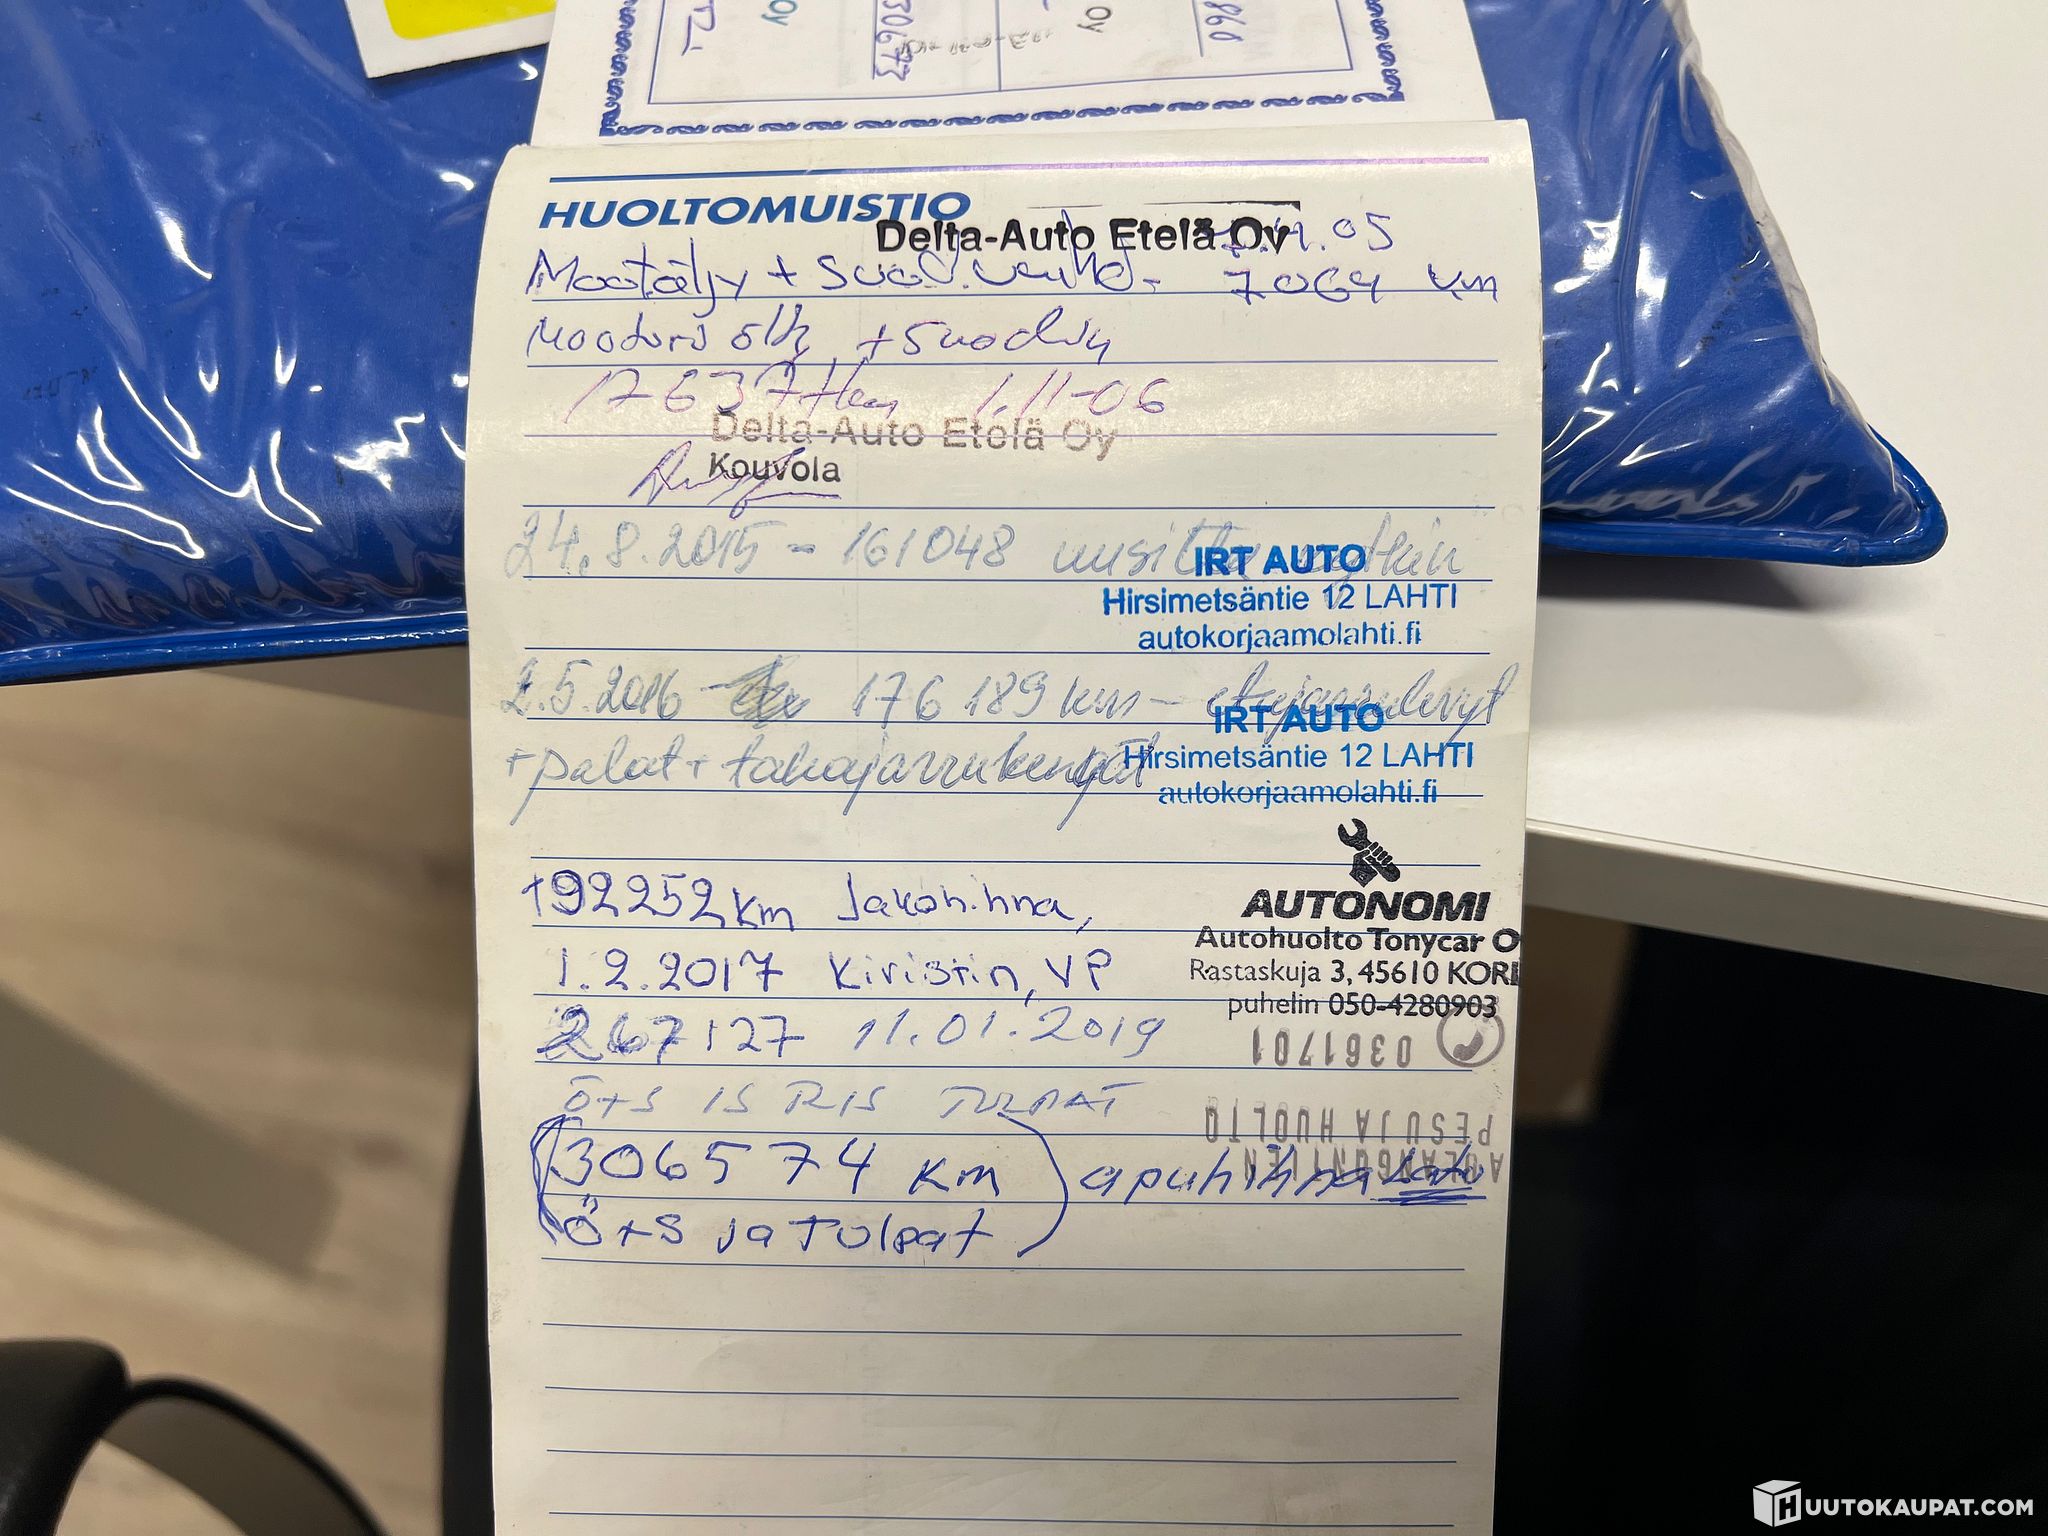 Oy
30673
Oy
860
HUOLTOMUISTIO
Delta-Auto Etelä Oy
.11.05
Mootöljy + suod. vaihto - 7064 km
Moottori öljy + suodin
17637 km 1.11-06
Delta-Auto Etelä Oy
Kouvola
24.8.2015 - 161048 uusittu kytkin
IRT AUTO
Hirsimetsäntie 12 LAHTI
autokorjaamolahti.fi
2.5.2016 176 189 km - etujarrulevyt
IRT AUTO
+ palat + takajarrukengät
Hirsimetsäntie 12 LAHTI
autokorjaamolahti.fi
192252 km Jakohihna,
AUTONOMI
Autohuolto Tonycar O
1.2.2017 Kiristin, VP
Rastaskuja 3, 45610 KORI
puhelin 050-4280903
267127 11.01.2019
0361701
Ö+S TULPAT
PESU JA HUOLTO
306574 km apuhihna
Ö+S ja Tulpat
HUUTOKAUPAT.COM